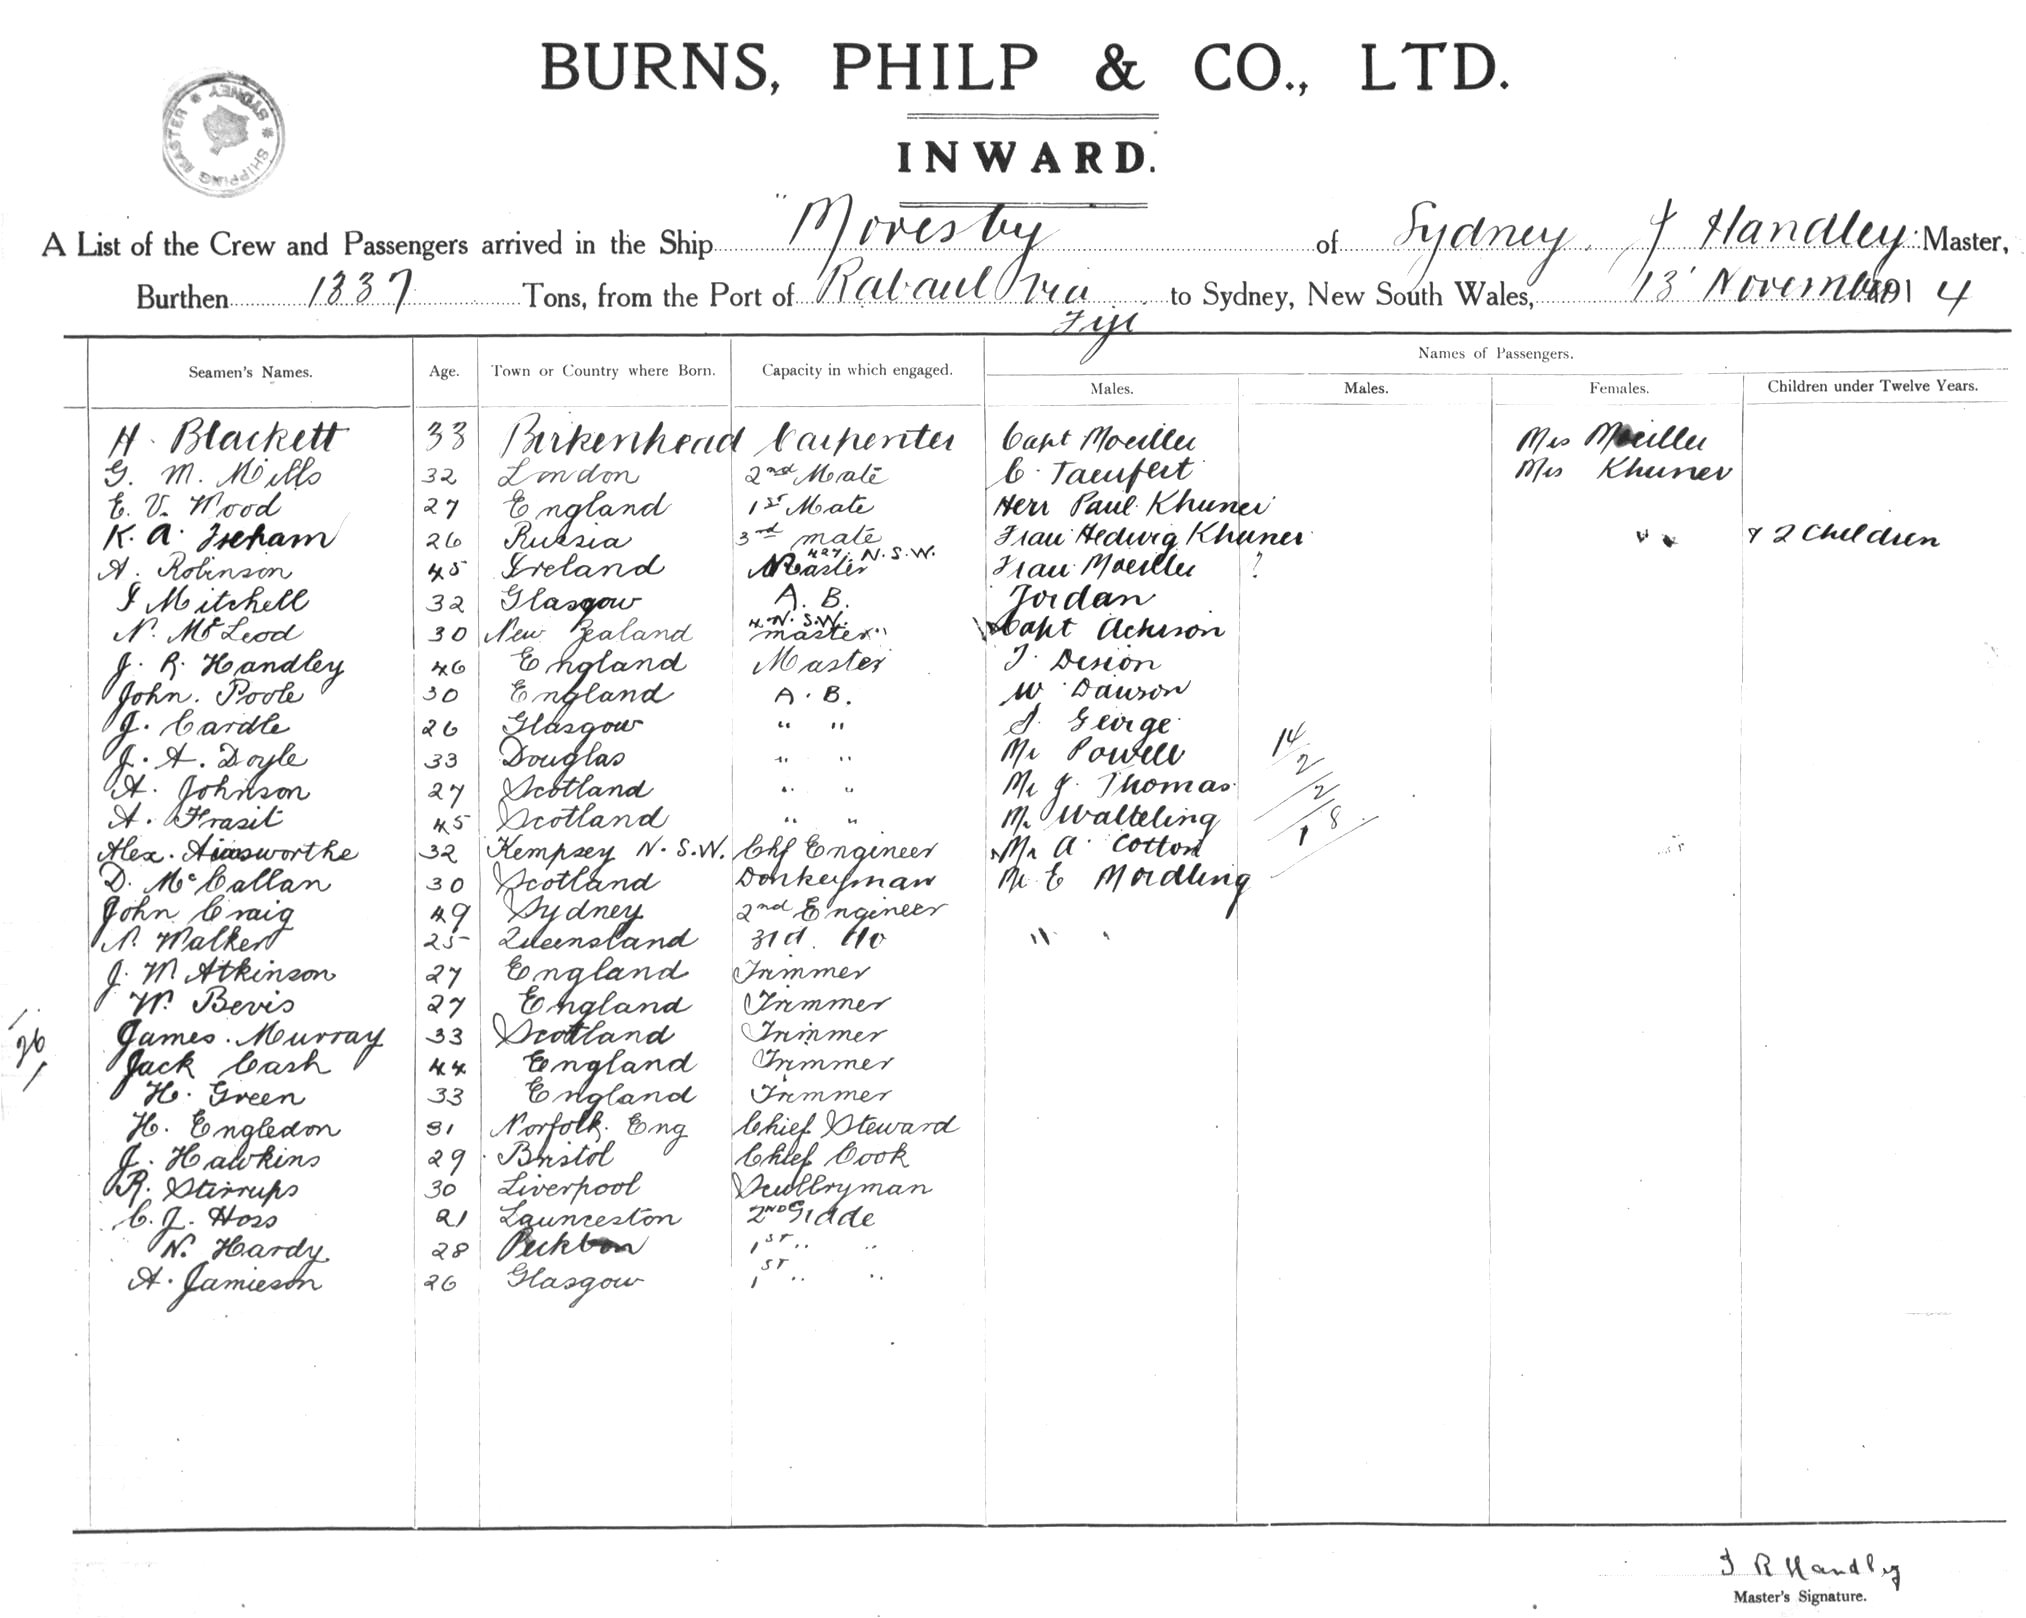 BURNS, PHILP & CO., LTD.
SHIPPING MASTER * SYDNEY *
INWARD.
A List of the Crew and Passengers arrived in the Ship "Moresby of Sydney. J Handley Master,
Burthen 1337 Tons, from the Port of Rabaul via Fiji to Sydney, New South Wales, 13 November 1914
Names of Passengers.
Seamen's Names. Age. Town or Country where Born. Capacity in which engaged. Males. Males. Females. Children under Twelve Years.
H. Blackett 33 Birkenhead Carpenter Capt Moeiller Mrs Moeiller
G. M. Mills 32 London 2nd Mate C. Taeufert Mrs Khuner
E. V. Wood 27 England 1st Mate Herr Paul Khuner
K. A. 26 Russia 3rd mate Frau Hedwig Khuner " " & 2 Children
A. Robinson 45 Ireland Master 427. N.S.W. Frau Moeiller ?
J Mitchell 32 Glasgow A. B. Jordan
N. McLeod 30 New Zealand master 4 N.S.W. Capt
J. R. Handley 46 England Master
John. Poole 30 England A. B. W Dawson
J. Cardle 26 Glasgow " " George
J. A. Doyle 33 Douglas " " Mr Powell 14
A. Johnson 27 Scotland " " Mr J. Thomas 2 2
A. Frasit 45 Scotland " " Mr Walteling 1 8
Alex. Ainsworthe 32 Kempsey N.S.W. Chf Engineer Mr A. Cotton
D. McCallan 30 Scotland Donkeyman Mr E Mordling
John Craig 49 Sydney 2nd Engineer
N. Walker 25 Queensland 3rd. do
J. W. Atkinson 27 England Trimmer
W. Bevis 27 England Trimmer
James. Murray 33 Scotland Trimmer
26
Jack Cash 44 England Trimmer
H. Green 33 England Trimmer
H. Engledon 31 Norfolk. Eng Chief Steward
J. Hawkins 29 Bristol Chief Cook
R. Stirrups 30 Liverpool Scullryman
C. J. Hoss 21 Launceston 2ND Grade
N. Hardy 28 1ST " "
A. Jamieson 26 Glasgow 1ST " "
J R Handley
Master's Signature.